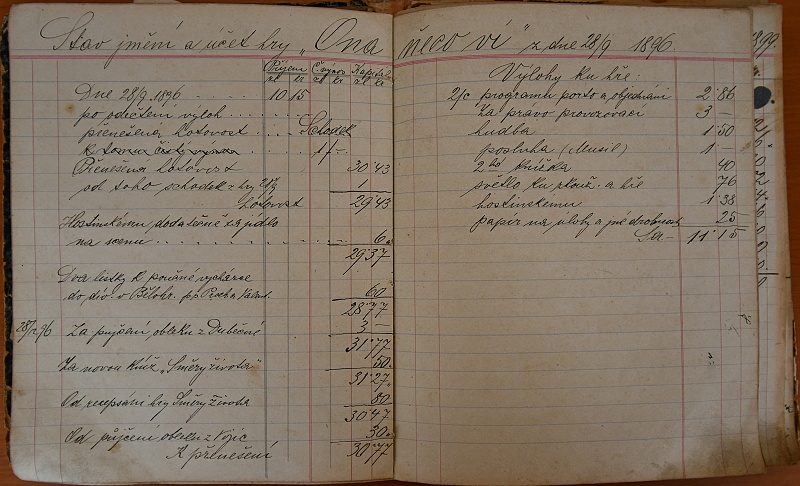 Stav jmění a účet hry „Ona
Příjem Č. výnos Kapitál
zl kr zl kr zl kr
Dne 28/9 1896 10 15
po odečtení výloh
přenešena hotovost Schodek
k tomu čistý výnos 1 / -
Přenešená hotovost 30 43
od toho schodek z hry 28/9 1
hotovost 29 43
Hostinskému dodatečně za jídlo
na scenu 6
29 37
Dva lístky k pořádané
do div. v Bělohr. 60
28 77
28/12 96 Za půjčení obleku z Dubečné 3 —
31 77
Za novou kníž „Směry života" 50
31 27
Od rozepsání hry Směry života 80
30 47
Od půjčení obleku z 30
K přenešení 30 77
něco ví" z dne 28/9 1896.
Výlohy ku hře:
2/c programu porto a objednání 2 86
Za právo provozovací 3 —
hudba 1 50
posluha (Musil) 1 —
2 knížka 40
světlo ku zkouš. a hře 76
hostinskému 1 38
papír na úlohy a jiné drobnosti 25
Sa. 11 15